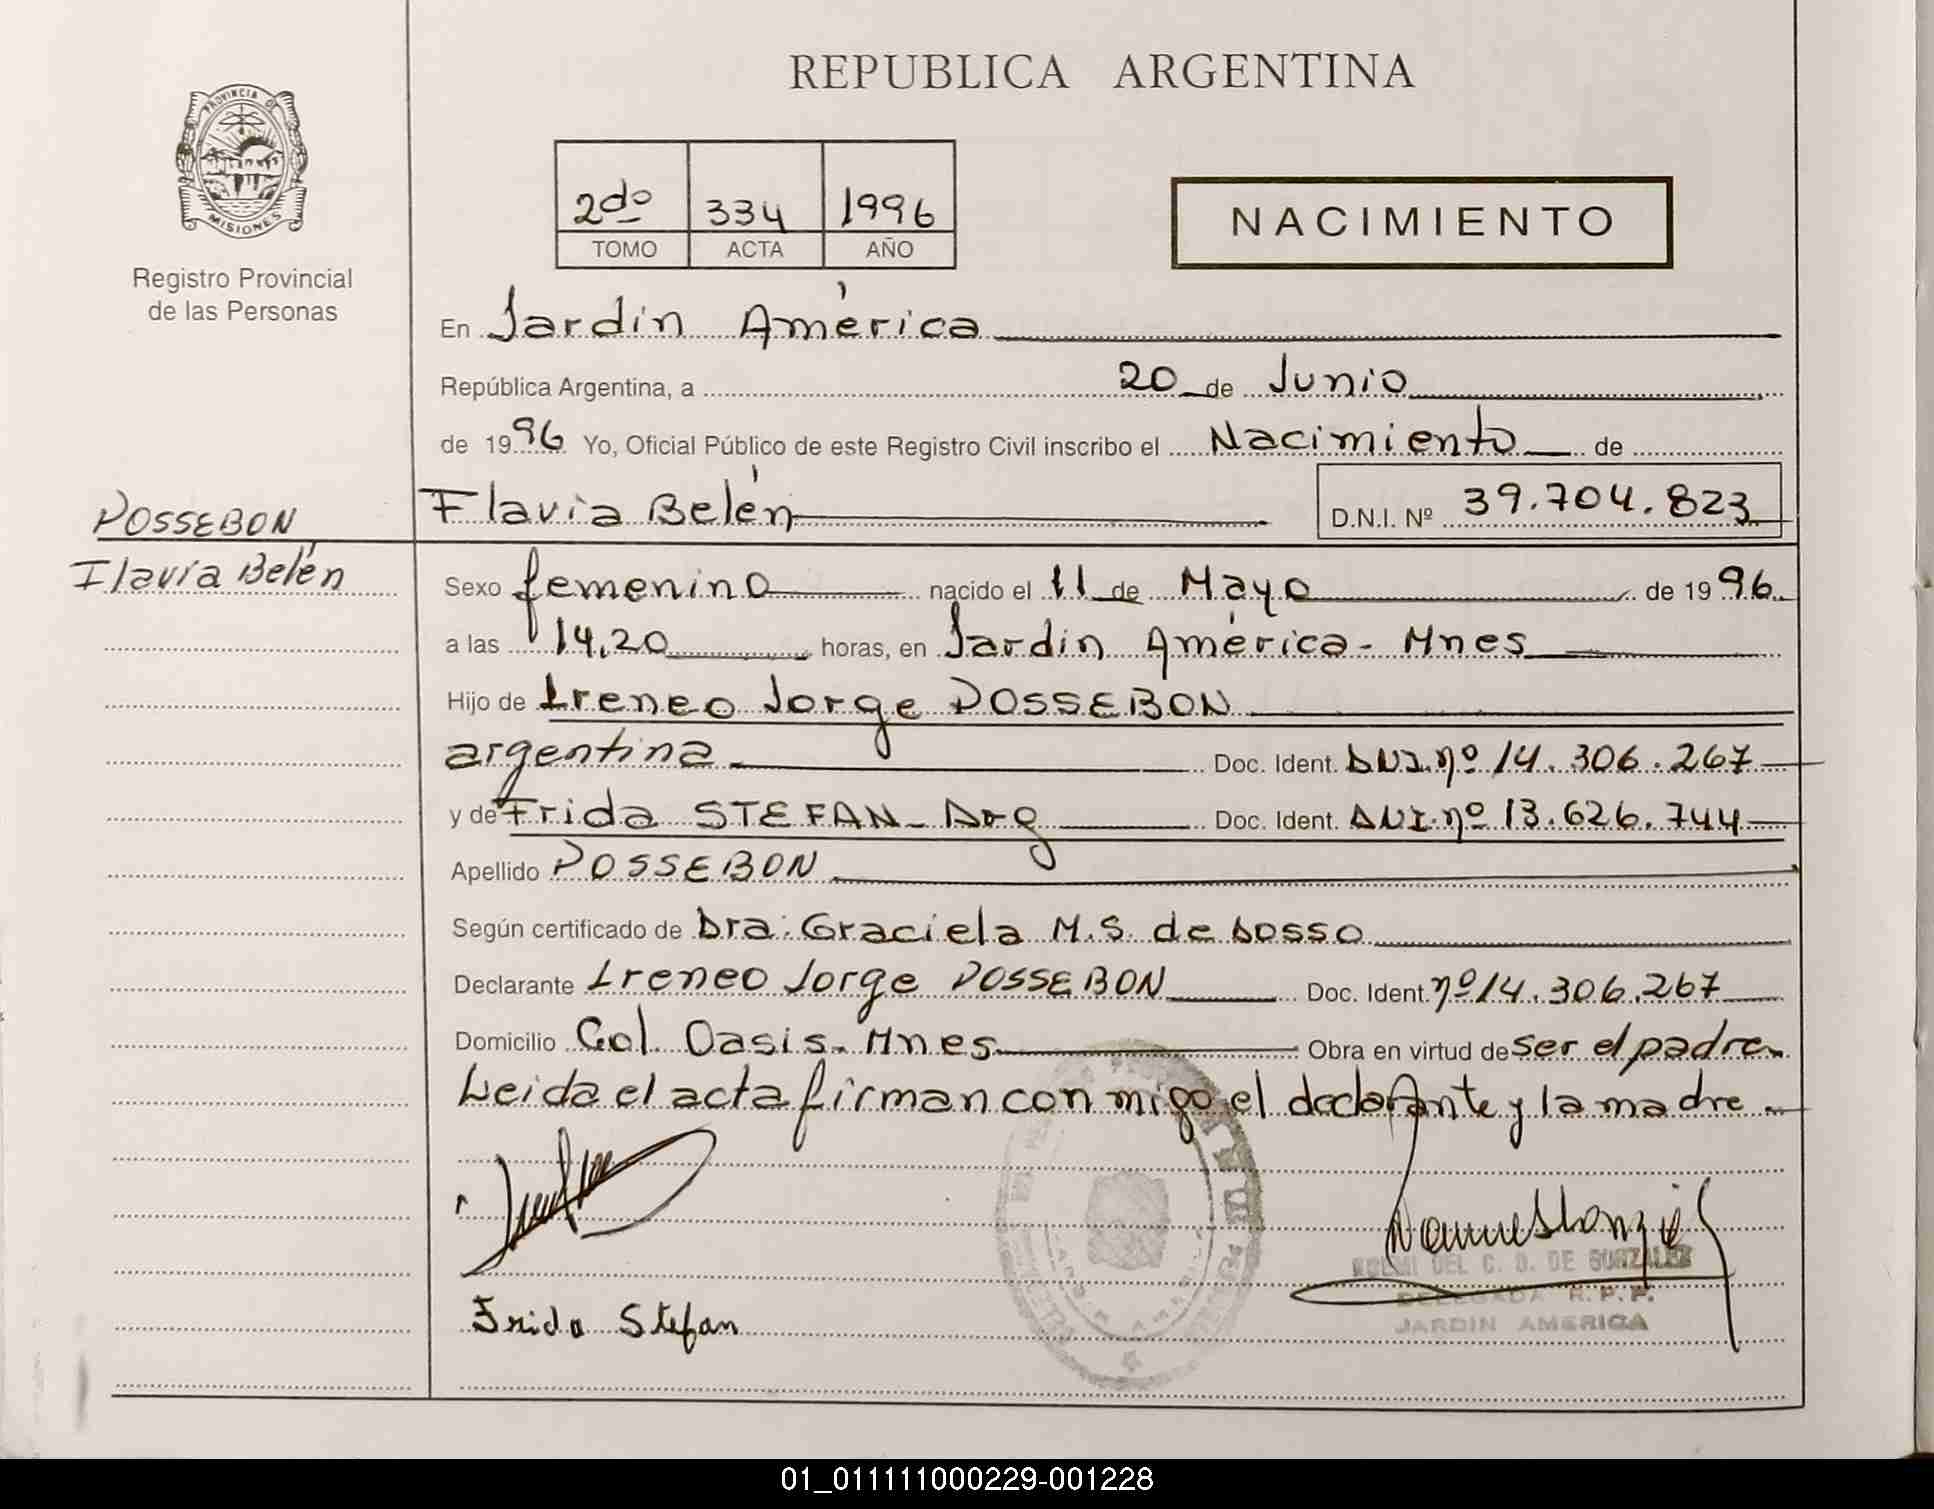 REPUBLICA ARGENTINA
PROVINCIA DE
MISIONES
Registro Provincial
de las Personas
2do 334 1996
TOMO ACTA AÑO
NACIMIENTO
En Jardín América
República Argentina, a 20 de Junio
de 1996 Yo, Oficial Público de este Registro Civil inscribo el Nacimiento de
Flavia Belén D.N.I. Nº 39.704.823
POSSEBON
Flavia Belén
Sexo femenino nacido el 11 de Mayo de 1996
a las 14,20 horas, en Jardín América - Mnes
Hijo de Ireneo Jorge POSSEBON
argentina Doc. Ident. DNI. nº 14.306.267
y de Frida STEFAN - Arg Doc. Ident. DNI. nº 13.626.744
Apellido POSSEBON
Según certificado de Dra: Graciela M.S. de Dosso
Declarante Ireneo Jorge POSSEBON Doc. Ident. nº 14.306.267
Domicilio Col. Oasis - Mnes Obra en virtud de ser el padre
Leida el acta firman con migo el declarante y la madre
DEL C. D. DE GONZALEZ
DELEGADA R. P. P.
JARDIN AMERICA
Frida Stefan
01_011111000229-001228